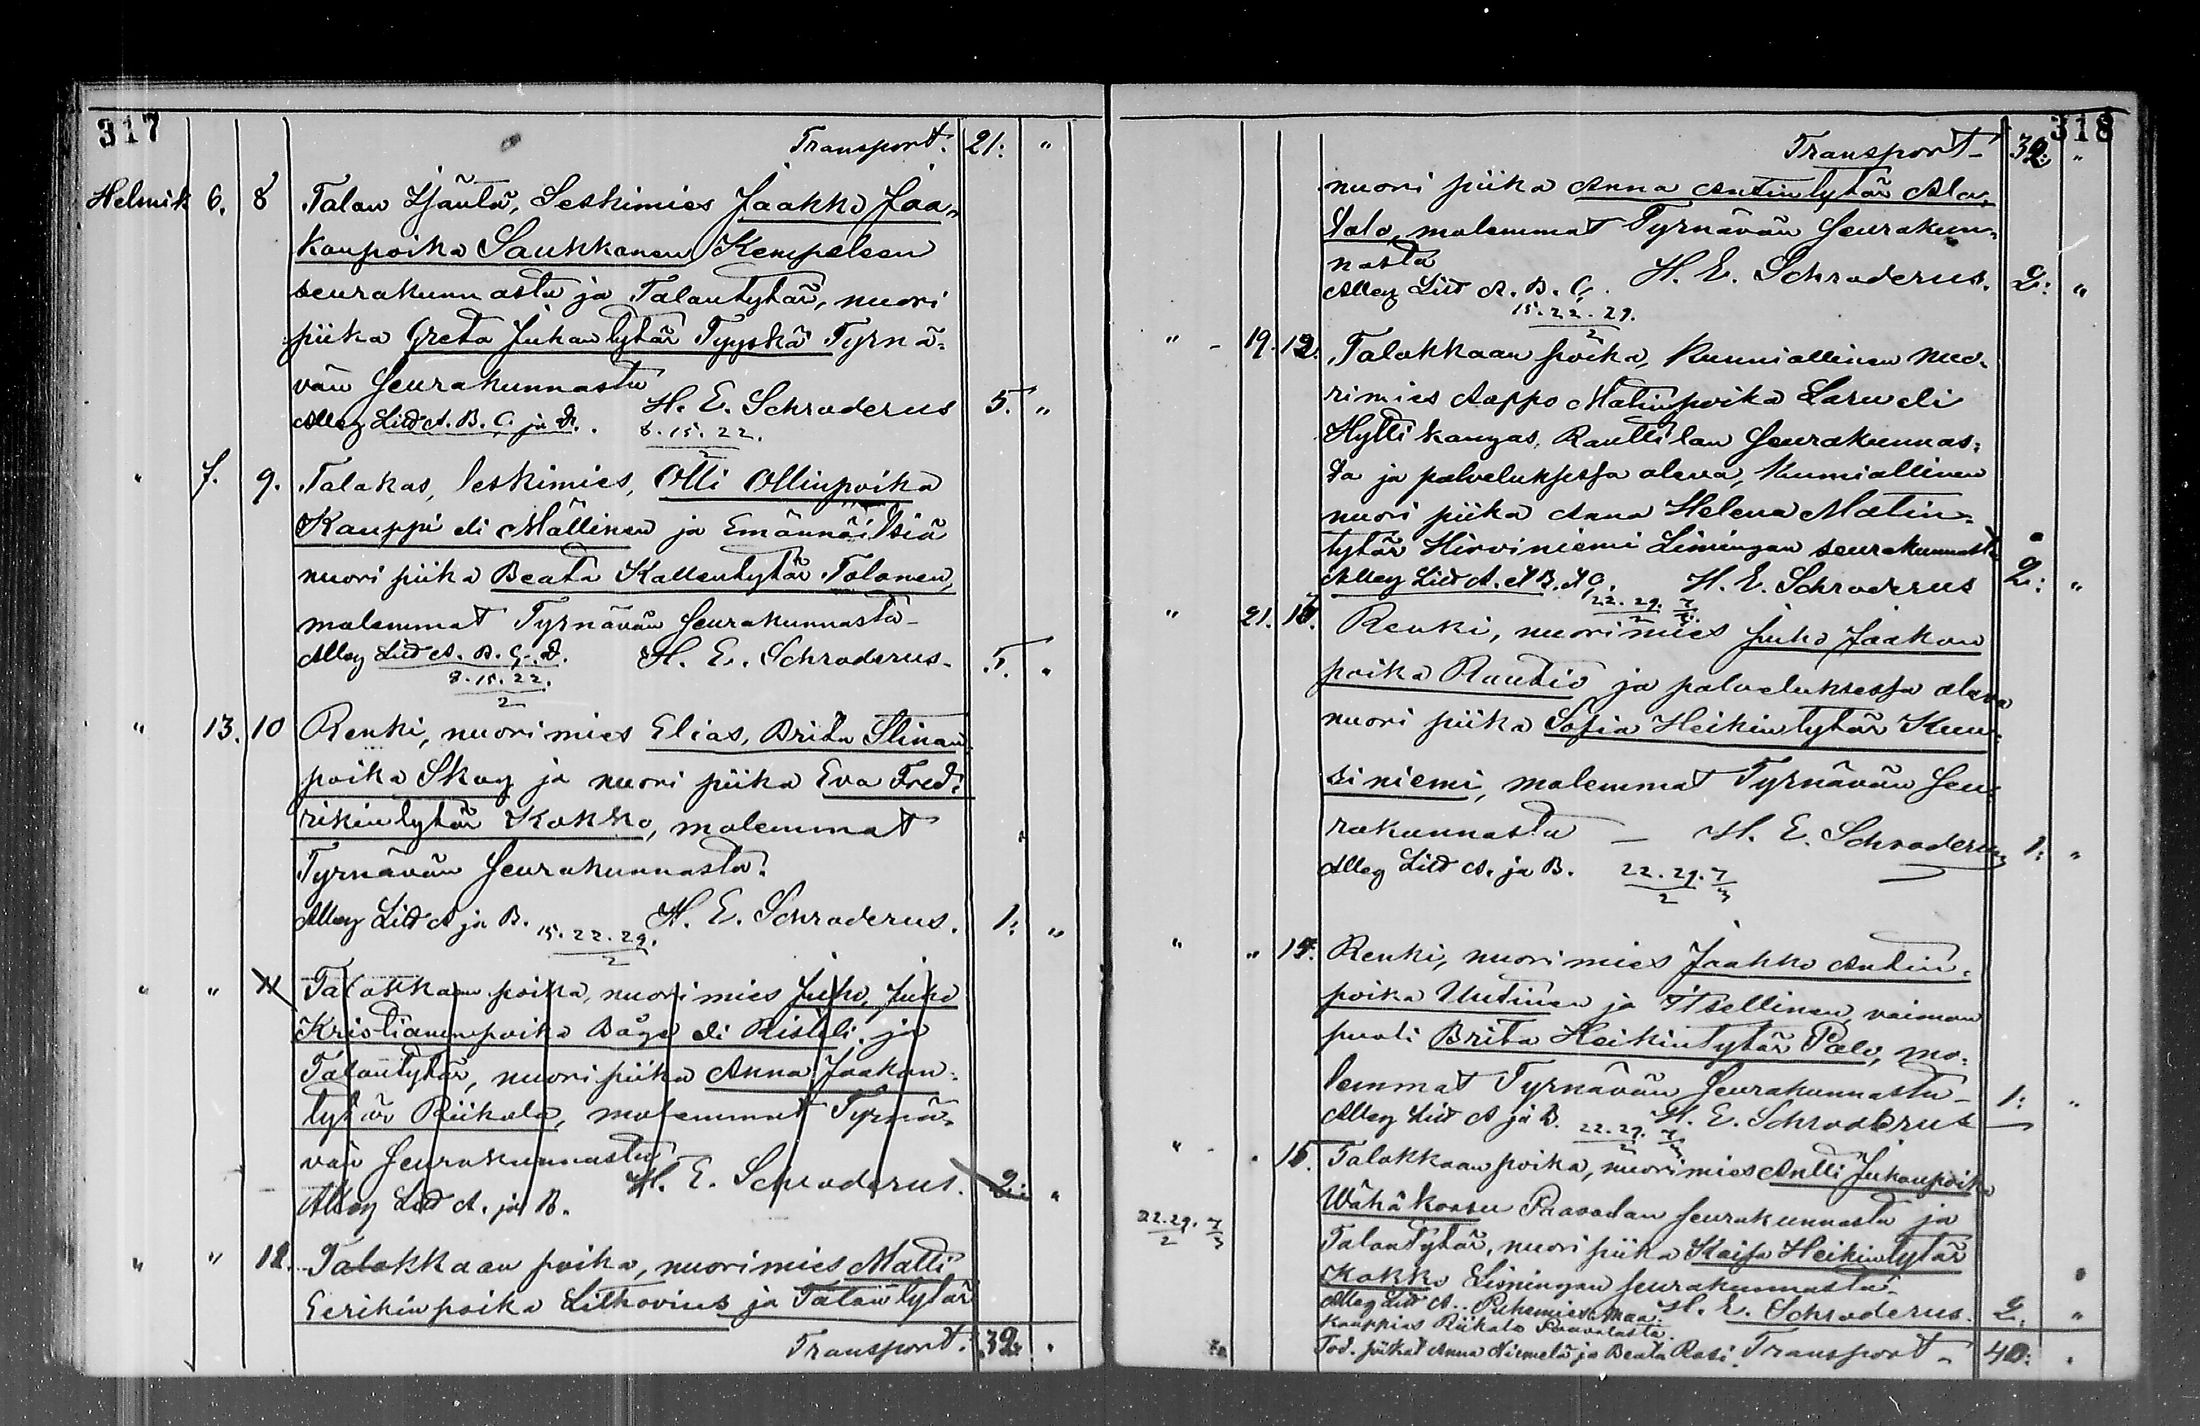 317
Transport. 21: "
Helmik 6. 8 Talan Isäntä, Leskimies Jaakko Jaa-
konpoika Saukkonen Kempeleen
seurakunnasta ja Talontytär, nuori
piika Greta Juhantytär Tyyskä Tyrnä-
vän Seurakunnasta
Alleg Litt A. B. C. ja D. H. E. Schroderus 5. "
8. 15. 22.
2
" 7. 9. Talokas, leskimies, Olli Ollinpoika
Kauppi eli Mällinen ja Emännöitsiä
nuori piika Beata Kallentytär Tolonen,
molemmat Tyrnävän Seurakunnasta
Alleg Litt A. B. C. D. H. E. Schroderus. 5. "
8. 15. 22.
2
" 13. 10 Renki, nuorimies Elias, Brita Stinan
poika Skog ja nuori piika Eva Fred-
rikintytär Kokko, molemmat
Tyrnävän Seurakunnasta.
Alleg Litt A ja B. H. E. Schroderus. 1: "
15. 22. 29.
2
" " 11 Talokkaan poika, nuorimies Juho, Juho
Kristianinpoika Båge eli Risteli, ja
Talontytär, nuori piika Anna Jaakon-
tytär Riikola, molemmat Tyrnä-
vän Seurakunnasta
H. E. Schroderus. 2: "
Alleg Litt A. ja B.
" " 12. Talokkaan poika, nuorimies Matti
Eerikinpoika Lithovius ja Talontytär
Transport. 32: "
318
Transport 32: "
nuori piika Anna Antintytär Ala-
talo, molemmat Tyrnävän Seurakun-
nasta
Alleg Litt A. B. C. H. E. Schroderus. 2: "
15. 22. 29.
2
" 19. 12. Talokkaan poika, kunniallinen nuo-
rimies Aappo Matinpoika Laru eli
Hyttikangas, Rantsilan Seurakunnas-
ta ja palveluksessa oleva, kunniallinen
nuori piika Anna Helena Matin-
tytär Hirviniemi Limingan seurakunnasta
Alleg Litt A. B. C. H. E. Schroderus 2: "
22. 29. 7
2 3
" 21. 13. Renki, nuorimies Juho Jaakon
poika Rautio ja palveluksessa oleva
nuori piika Sofia Heikintytär Kuu-
siniemi, molemmat Tyrnävän Seu-
rakunnasta H. E. Schroderus 1: "
Alleg Litt A. ja B. 22. 29. 7
2 3
" " 14. Renki, nuorimies Jaakko Antin-
poika Uutinen ja Itsellinen, vaimon
puoli Brita Heikintytär Palo, mo-
lemmat Tyrnävän Seurakunnasta 1: "
Alleg Litt A ja B. 22. 29. 7 H. E. Schroderus
2 3
" " 15. Talokkaan poika, nuorimies Antti Juhonpoika
Wähäkoosu Paavolan Seurakunnasta ja
22. 29. 7
2 3
Talontytär, nuori piika Kaisa Heikintytär
Kokko Limingan Seurakunnasta
Alleg Litt A. Puhemies Maa- H. E. Schroderus. 2. "
kauppias Riikola Paavolasta.
Tod. piikat Anna Niemelä ja Beata Rasi. Transport 40: "